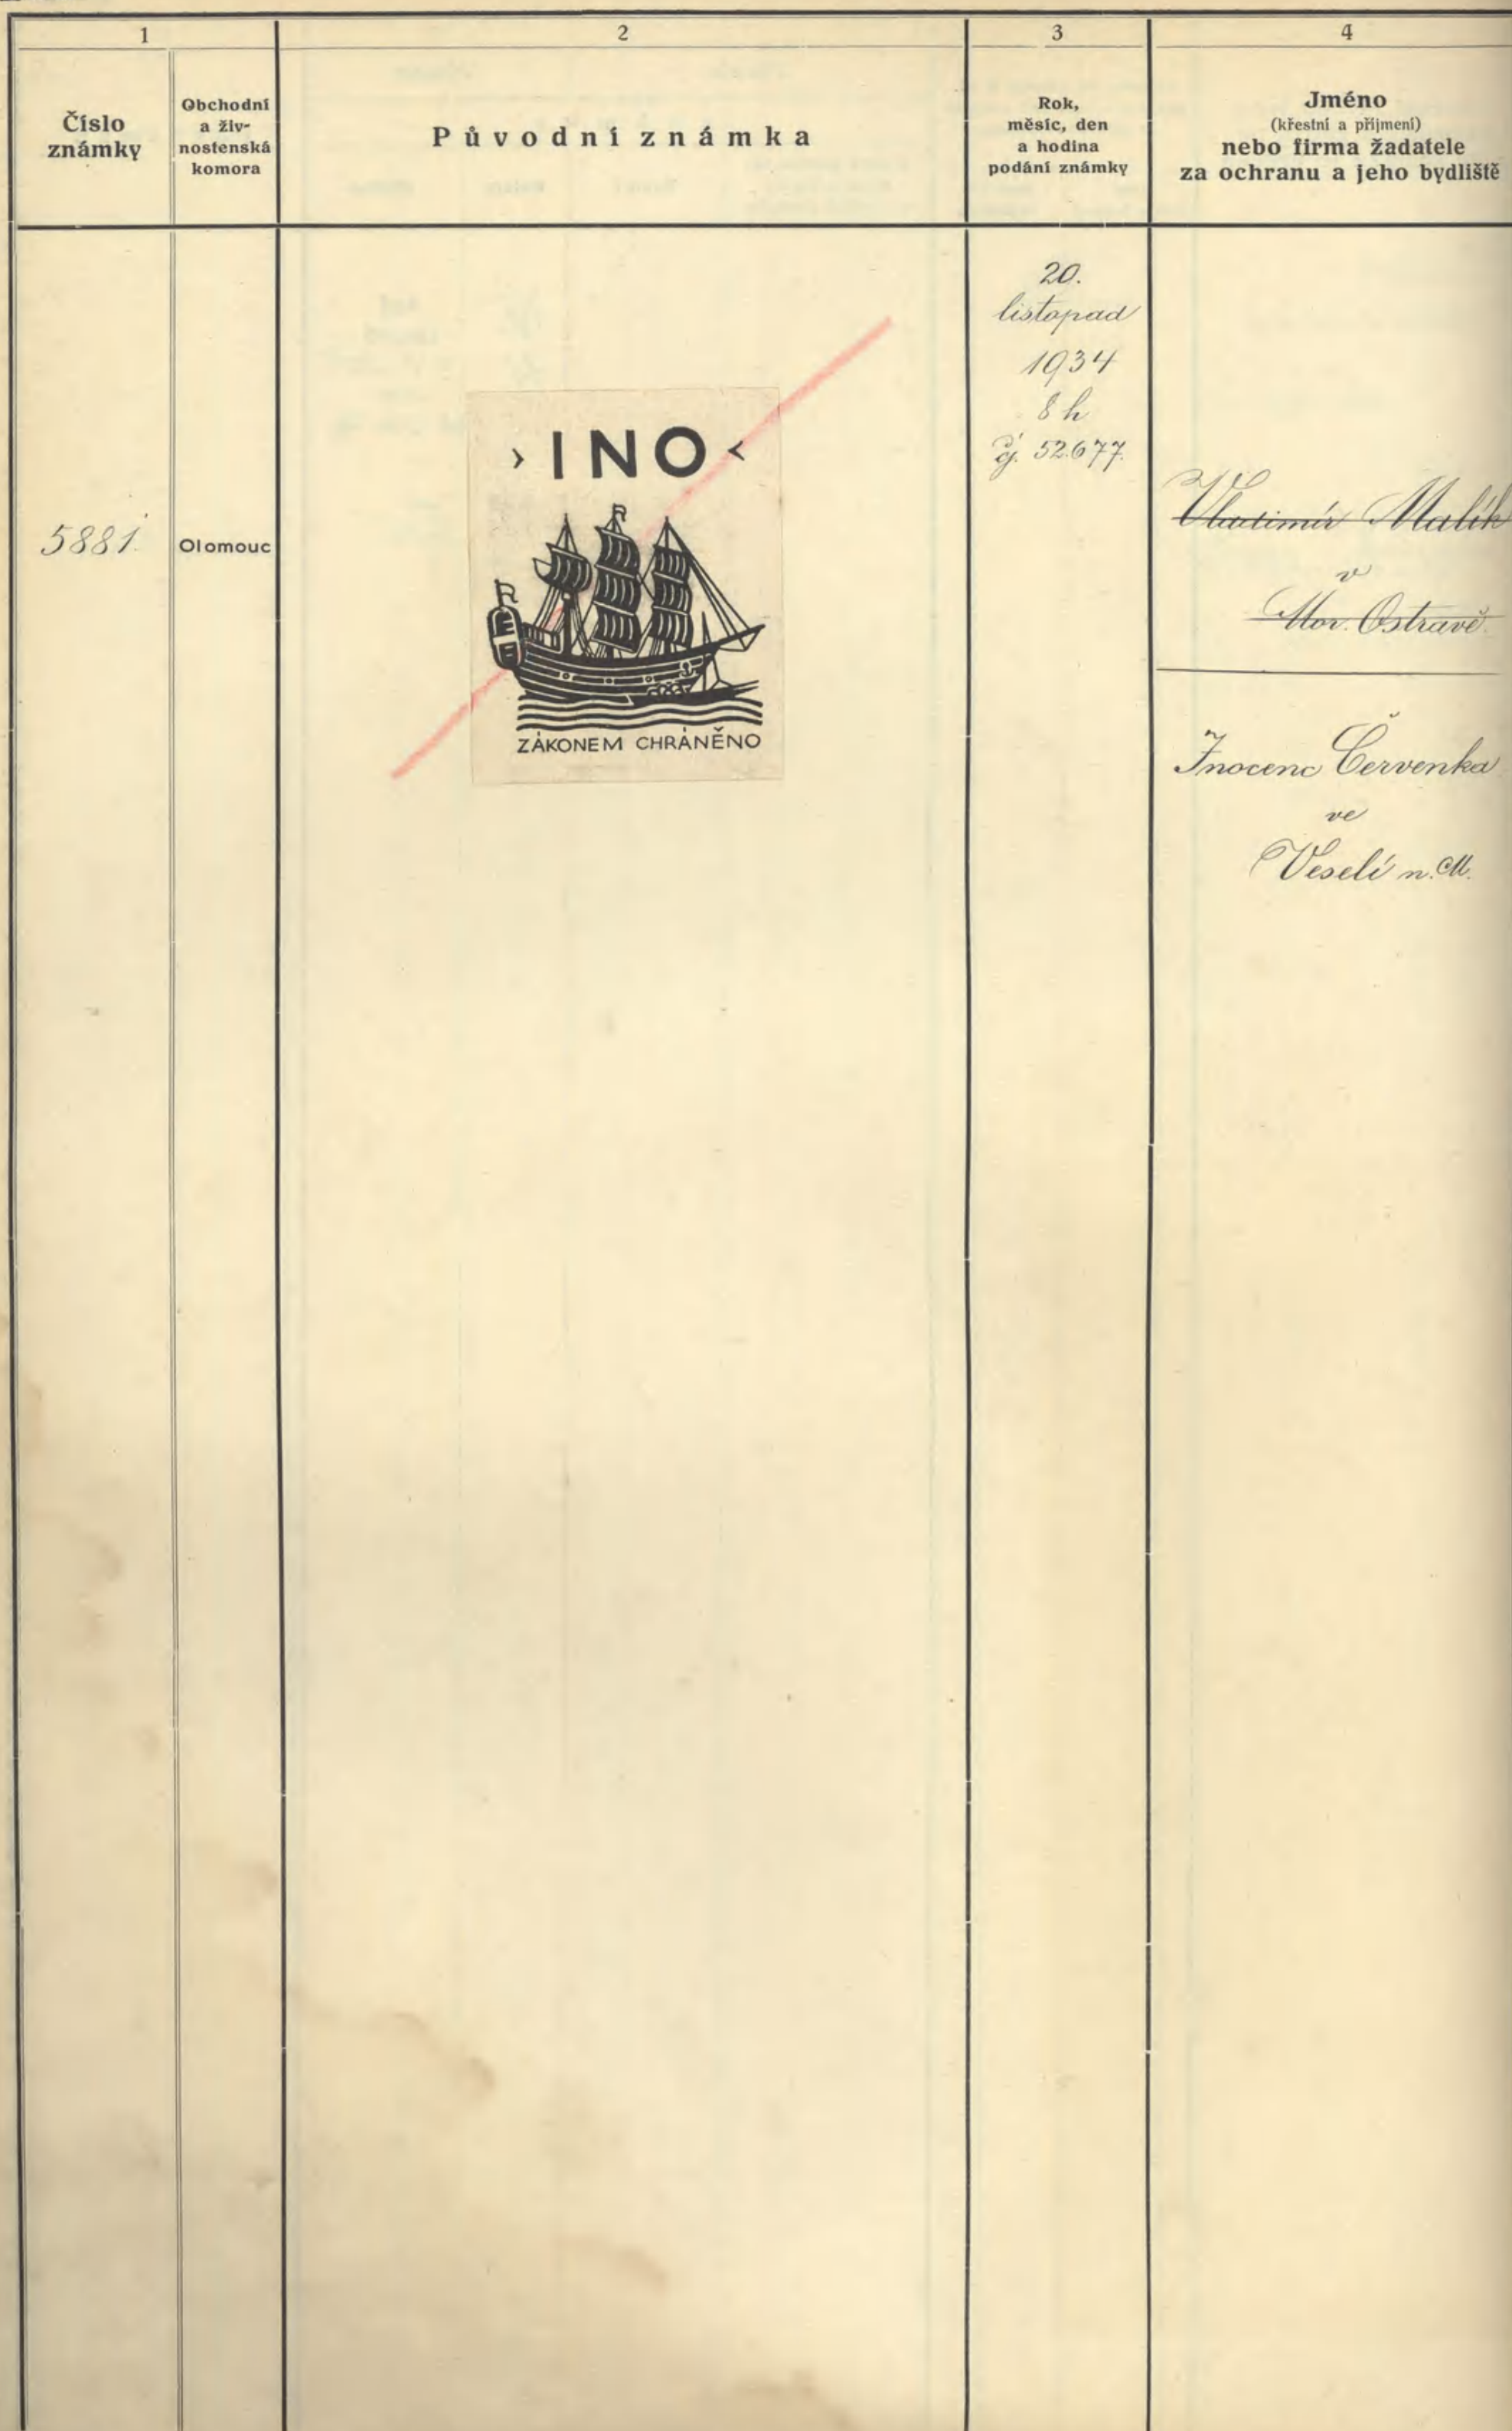 1
2
3
4
Číslo
známky
Obchodní
a živ-
nostenská
komora
Původní známka
Rok,
měsíc, den
a hodina
podání známky
Jméno
(křestní a příjmení)
nebo firma žadatele
za ochranu a jeho bydliště
5881.
Olomouc
›INO‹
ZÁKONEM CHRÁNĚNO
20.
listopad
1934
8 h
čj. 52.677.
Vladimír Malík
v
Mor. Ostravě.
Inocenc Červenka
ve
Veselí n. M.